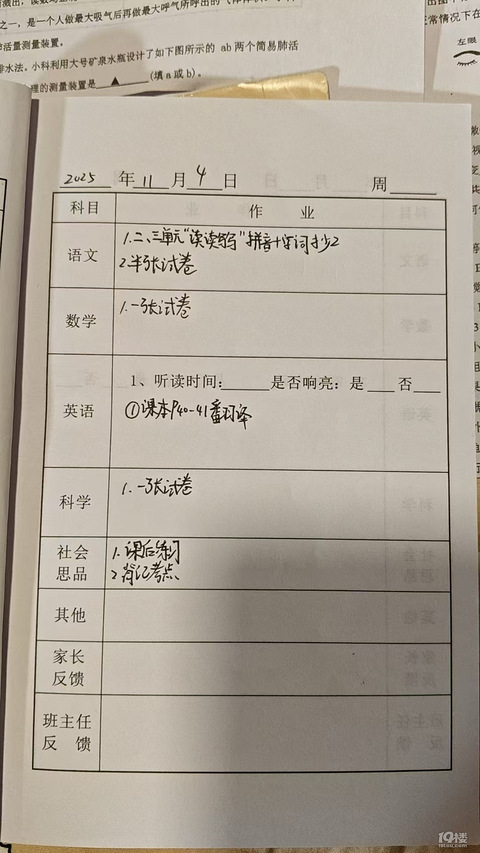 之一，是一个人做最大吸气后再做最大呼气所呼出的气体
肺活量测量装置。
排水法，小科利用大号矿泉水瓶设计了如下图所示的 ab两个简易肺活
理的测量装置是 ▲ (填 a或b)。
左眼
2025 年 11 月 4 日 周
科目 作 业
语文 1.二、三单元“读读写写”拼音+字词抄2
2.半张试卷
数学 1.一张试卷
1、听读时间： 是否响亮：是 否
英语 ①课本P40-41翻译
科学 1.一张试卷
社会 1.课后练习
思品 2.背记考点
其他
家长
反馈
班主任
反 馈
19楼
19lou.com